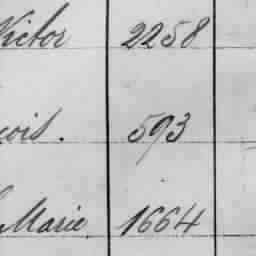 Victor 2258
çois. 593
Marie 1664